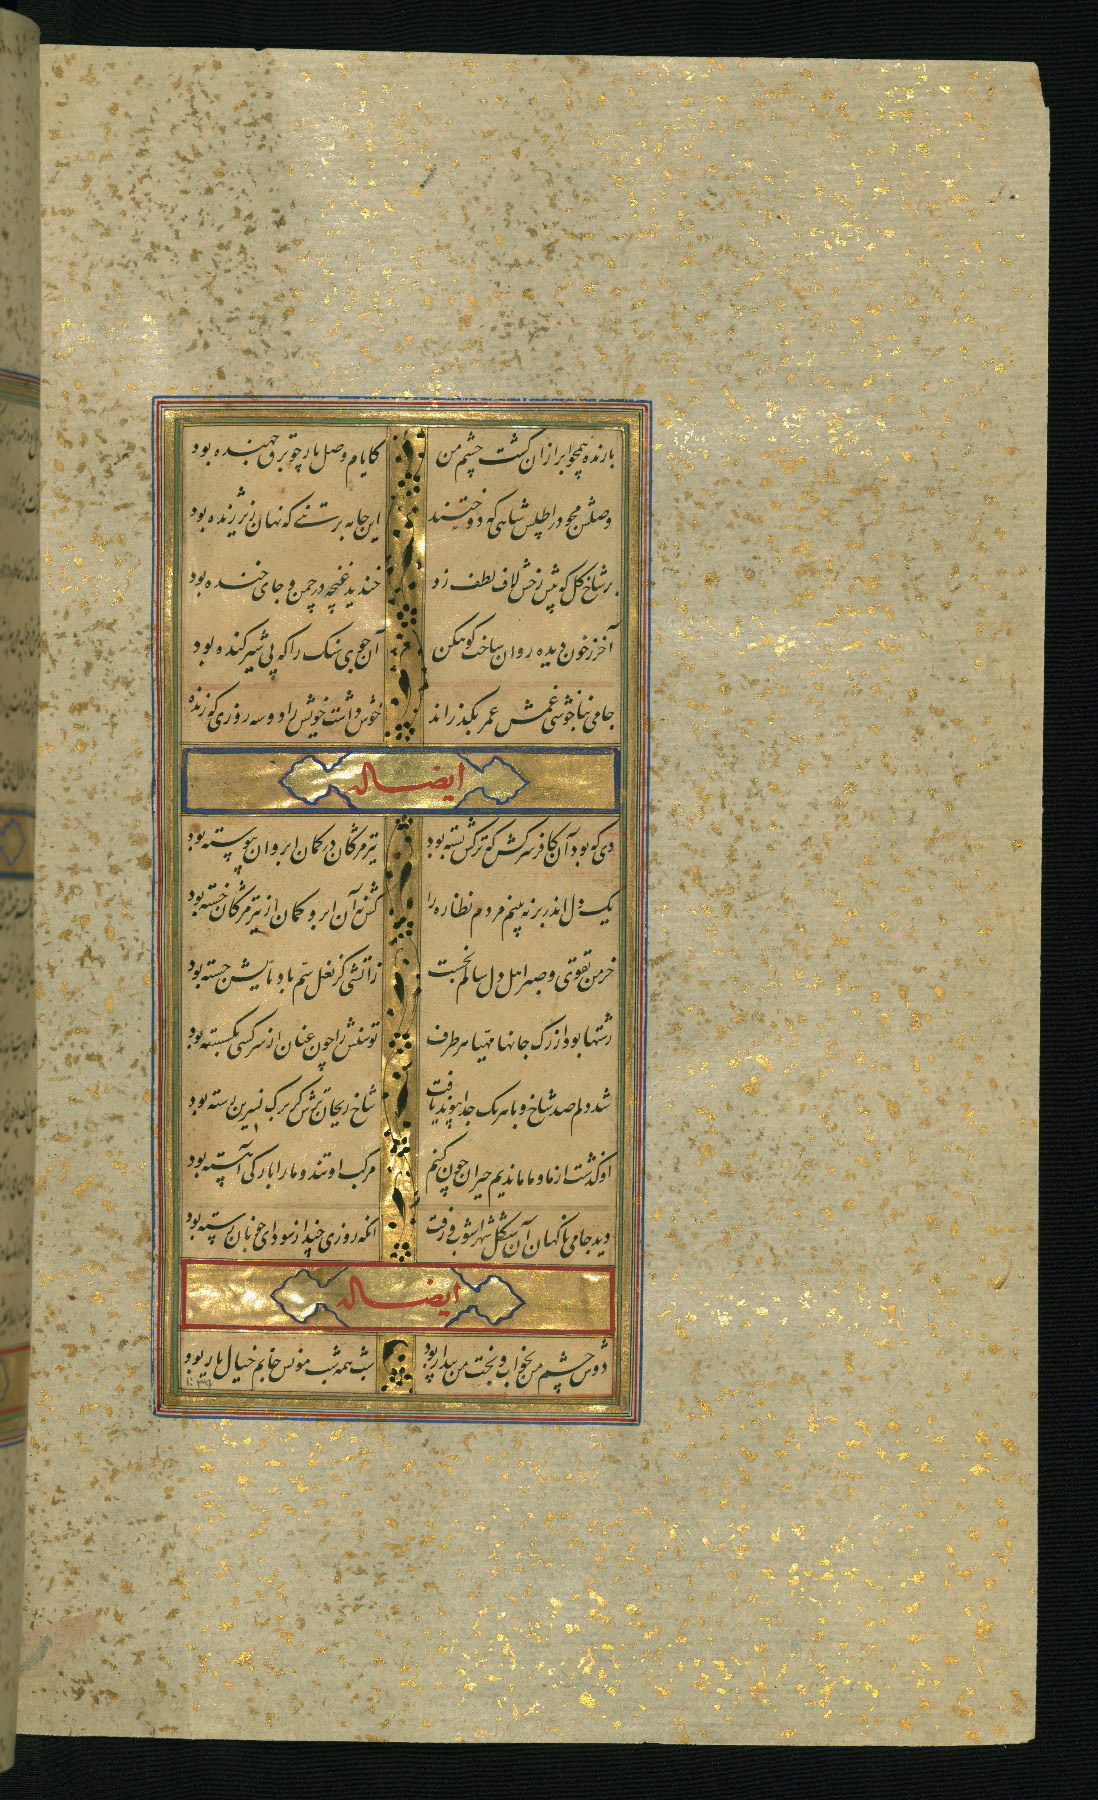 بارنده همچو ابر ازان گشت چشم من
کایام وصل یار چو برق جهنده بود
وصلش مجو در اطلس شاهی که دوختند
این جامه بر تنی که نهان زیر ژنده بود
بر شاخ گل که پیش رخش لاف لطف زد
خندید غنچه در چمن و جای خنده بود
آخر ز خون دیده روان ساخت کوهکن
آن جوی سنک را که پی شیر کنده بود
جامی بناخوشی غمش عمر بگذراند
خوش داشت خویش را دو سه روزی که زنده
ایضا له
دی که بود آن کافر سرکش که ترکش بسته بود
تیر مژگان در کمان ابروان پیوسته بود
یک دل اندر بر نه بینم مردم نظاره را
کش نه آن ابرو کمان از تیر مژگان خسته بود
خرمن تقوی و صبر اهل دل سالم نجست
زاتشی کز نعل سم بادپایش جسته بود
رشتها بود از رک جانها مهیا هر طرف
توسنش را چون عنان از سرکشی بگسسته بود
شد دلم صد شاخ و با هر یک جدا پیوند یافت
شاخ ریحان ترش کز برک نسرین رسته بود
او گذشت از ما و ما ماندیم حیران چون کنم
مرکب او تند و ما را بارگی آهسته بود
دید جامی ناگهان آن شکل شهرآشوب و رفت
آنکه روزی چند از سودای خوبان رسته بود
ایضا له
دوش چشم من بخواب و بخت من بیدار بود
شب همه شب مونس جانم خیال یار بود